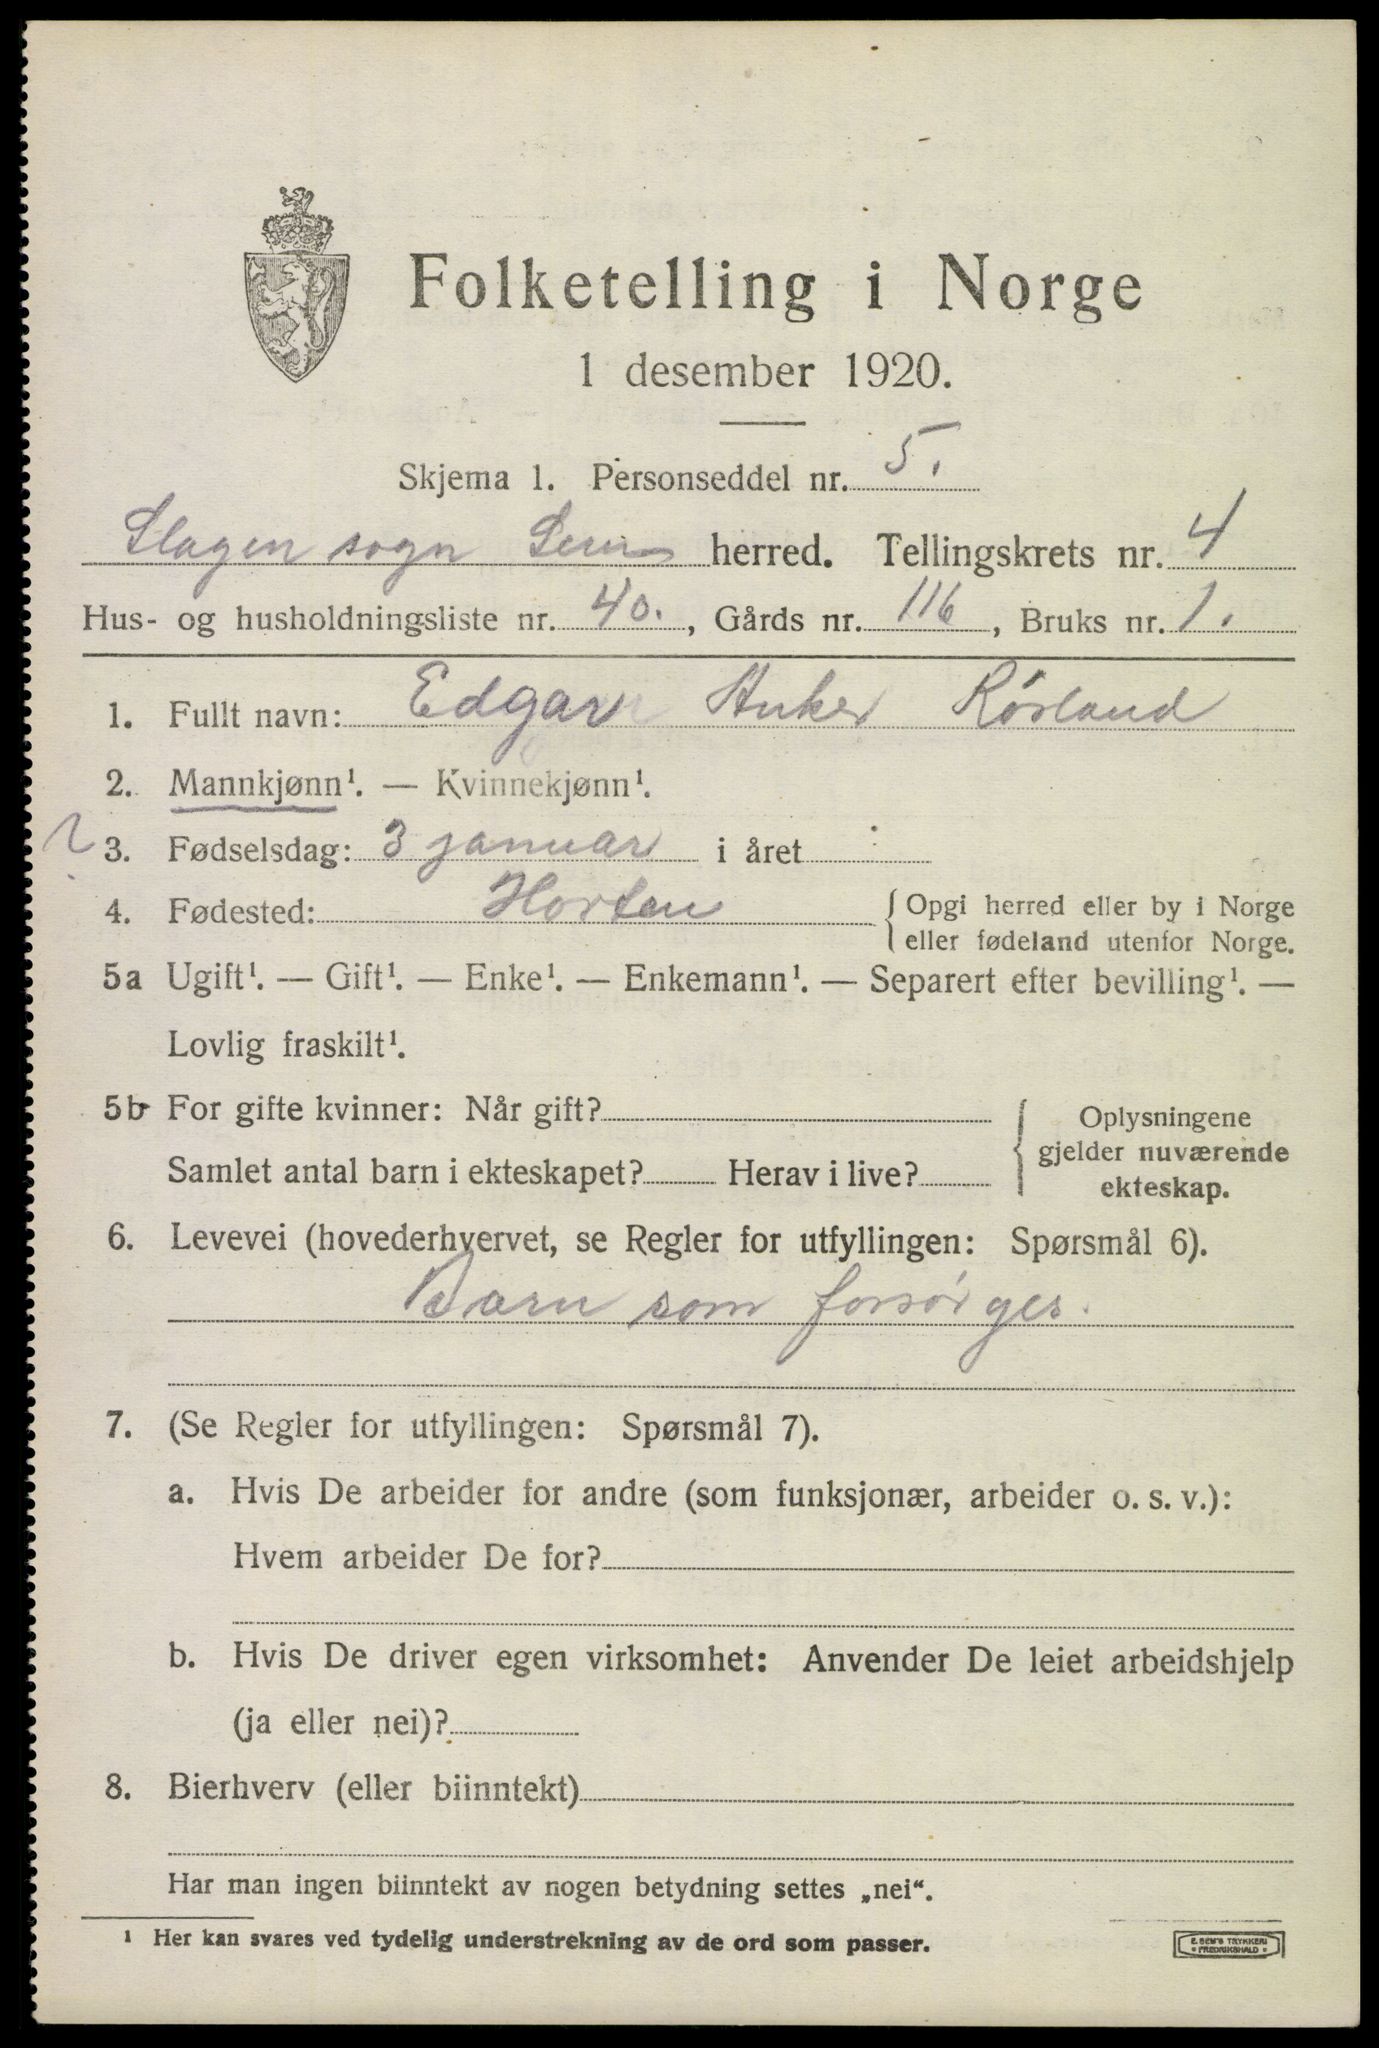 Folketelling i Norge
1 desember 1920.
Skjema 1. Personseddel nr. 5.
Slagen sogn Sem herred. Tellingskrets nr. 4
Hus- og husholdningsliste nr. 40., Gårds nr. 116, Bruks nr. 1.
1. Fullt navn: Edgar Anker Rörland
2. Mannkjønn¹. — Kvinnekjønn¹.
3. Fødselsdag: 3 januar i året
4. Fødested: Horten
Opgi herred eller by i Norge
eller fødeland utenfor Norge.
5a Ugift¹. — Gift¹. — Enke¹. — Enkemann¹. — Separert efter bevilling¹. —
Lovlig fraskilt¹.
5b For gifte kvinner: Når gift?
Samlet antal barn i ekteskapet? Herav i live?
Oplysningene
gjelder nuværende
ekteskap.
6. Levevei (hovederhvervet, se Regler for utfyllingen: Spørsmål 6).
Barn som forsörges.
7. (Se Regler for utfyllingen: Spørsmål 7).
a. Hvis De arbeider for andre (som funksjonær, arbeider o. s. v.):
Hvem arbeider De for?
b. Hvis De driver egen virksomhet: Anvender De leiet arbeidshjelp
(ja eller nei)?
8. Bierhverv (eller biinntekt)
Har man ingen biinntekt av nogen betydning settes „nei“.
¹ Her kan svares ved tydelig understrekning av de ord som passer.
E. SEM'S TRYKKERI
FREDRIKSHALD